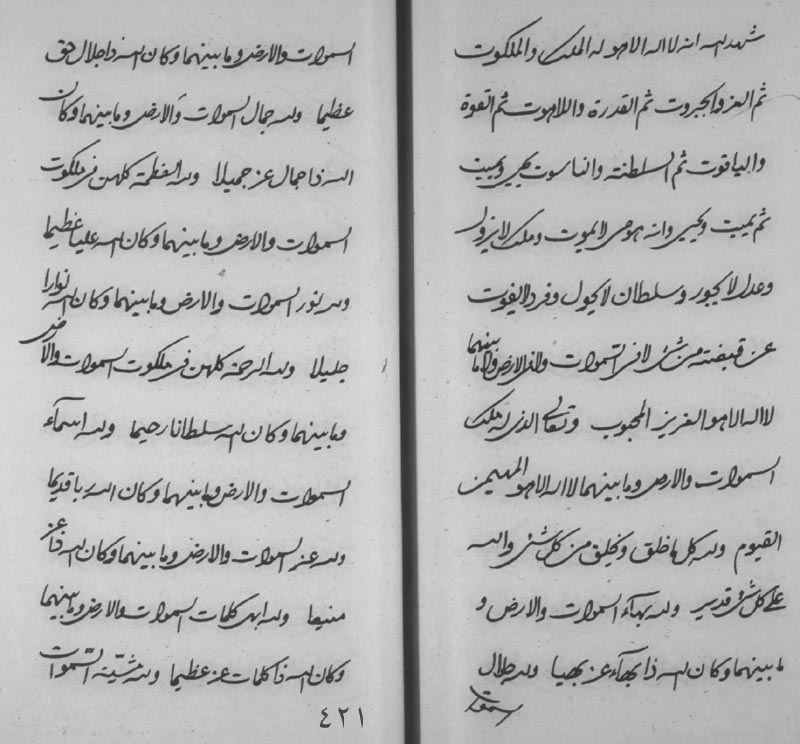 شهد الله انه لا اله الا هو له الملك والملكوت
ثم العز والجبروت ثم القدرة واللاهوت ثم القوة
والياقوت ثم السلطنة والناسوت يحيي ويميت
ثم يميت ويحيي وانه هو حي لا يموت وملك لا يزول
وعدل لا يجور وسلطان لا يحول وفرد لا يفوت
عن قبضته من شئ لا في السموات ولا في الارض ولا ما بينهما
لا اله الا هو العزيز المحبوب وتعالى الذي له ملك
السموات والارض وما بينهما لا اله الا هو المهيمن
القيوم ولله كل ما خلق ويخلق من كل شئ والله
على كل شئ قدير ولله بهآء السموات والارض و
ما بينهما وكان الله ذا بهآء عز بهيا ولله جلال
السموات
السموات والارض وما بينهما وكان الله ذا جلال حق
عظيما ولله جمال السموات والارض وما بينهما وكان
الله ذا جمال عز جميلا ولله العظمة كلهن في ملكوت
السموات والارض وما بينهما وكان الله عليا عظيما
ولله نور السموات والارض وما بينهما وكان الله نوارا
جليلا ولله الرحمة كلهن في ملكوت السموات والارض
وما بينهما وكان الله سلطانا رحيما ولله اسمآء
السموات والارض وما بينهما وكان الله ربا قديما
ولله عز السموات والارض وما بينهما وكان الله ذا عز
منيعا ولله ابهى كلمات السموات والارض وما بينهما
وكان الله ذا كلمات عز عظيما ولله مشيّة السّموات
٤٢١